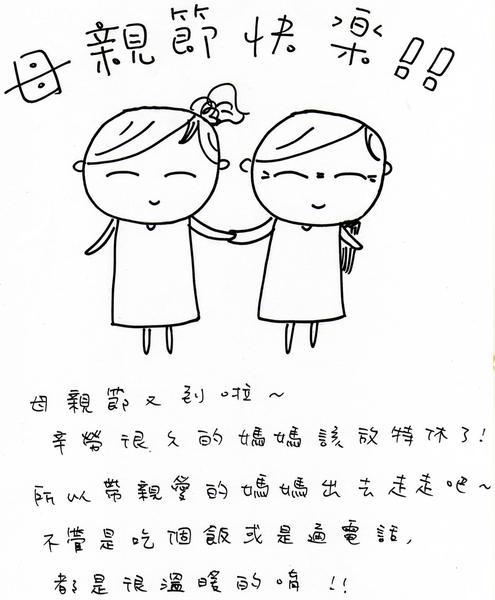 母親節快樂!!
母親節又到啦~
辛勞很久的媽媽該放特休了!
所以帶親愛的媽媽出去走走吧~
不管是吃個飯或是通電話,
都是很溫暖的唷!!